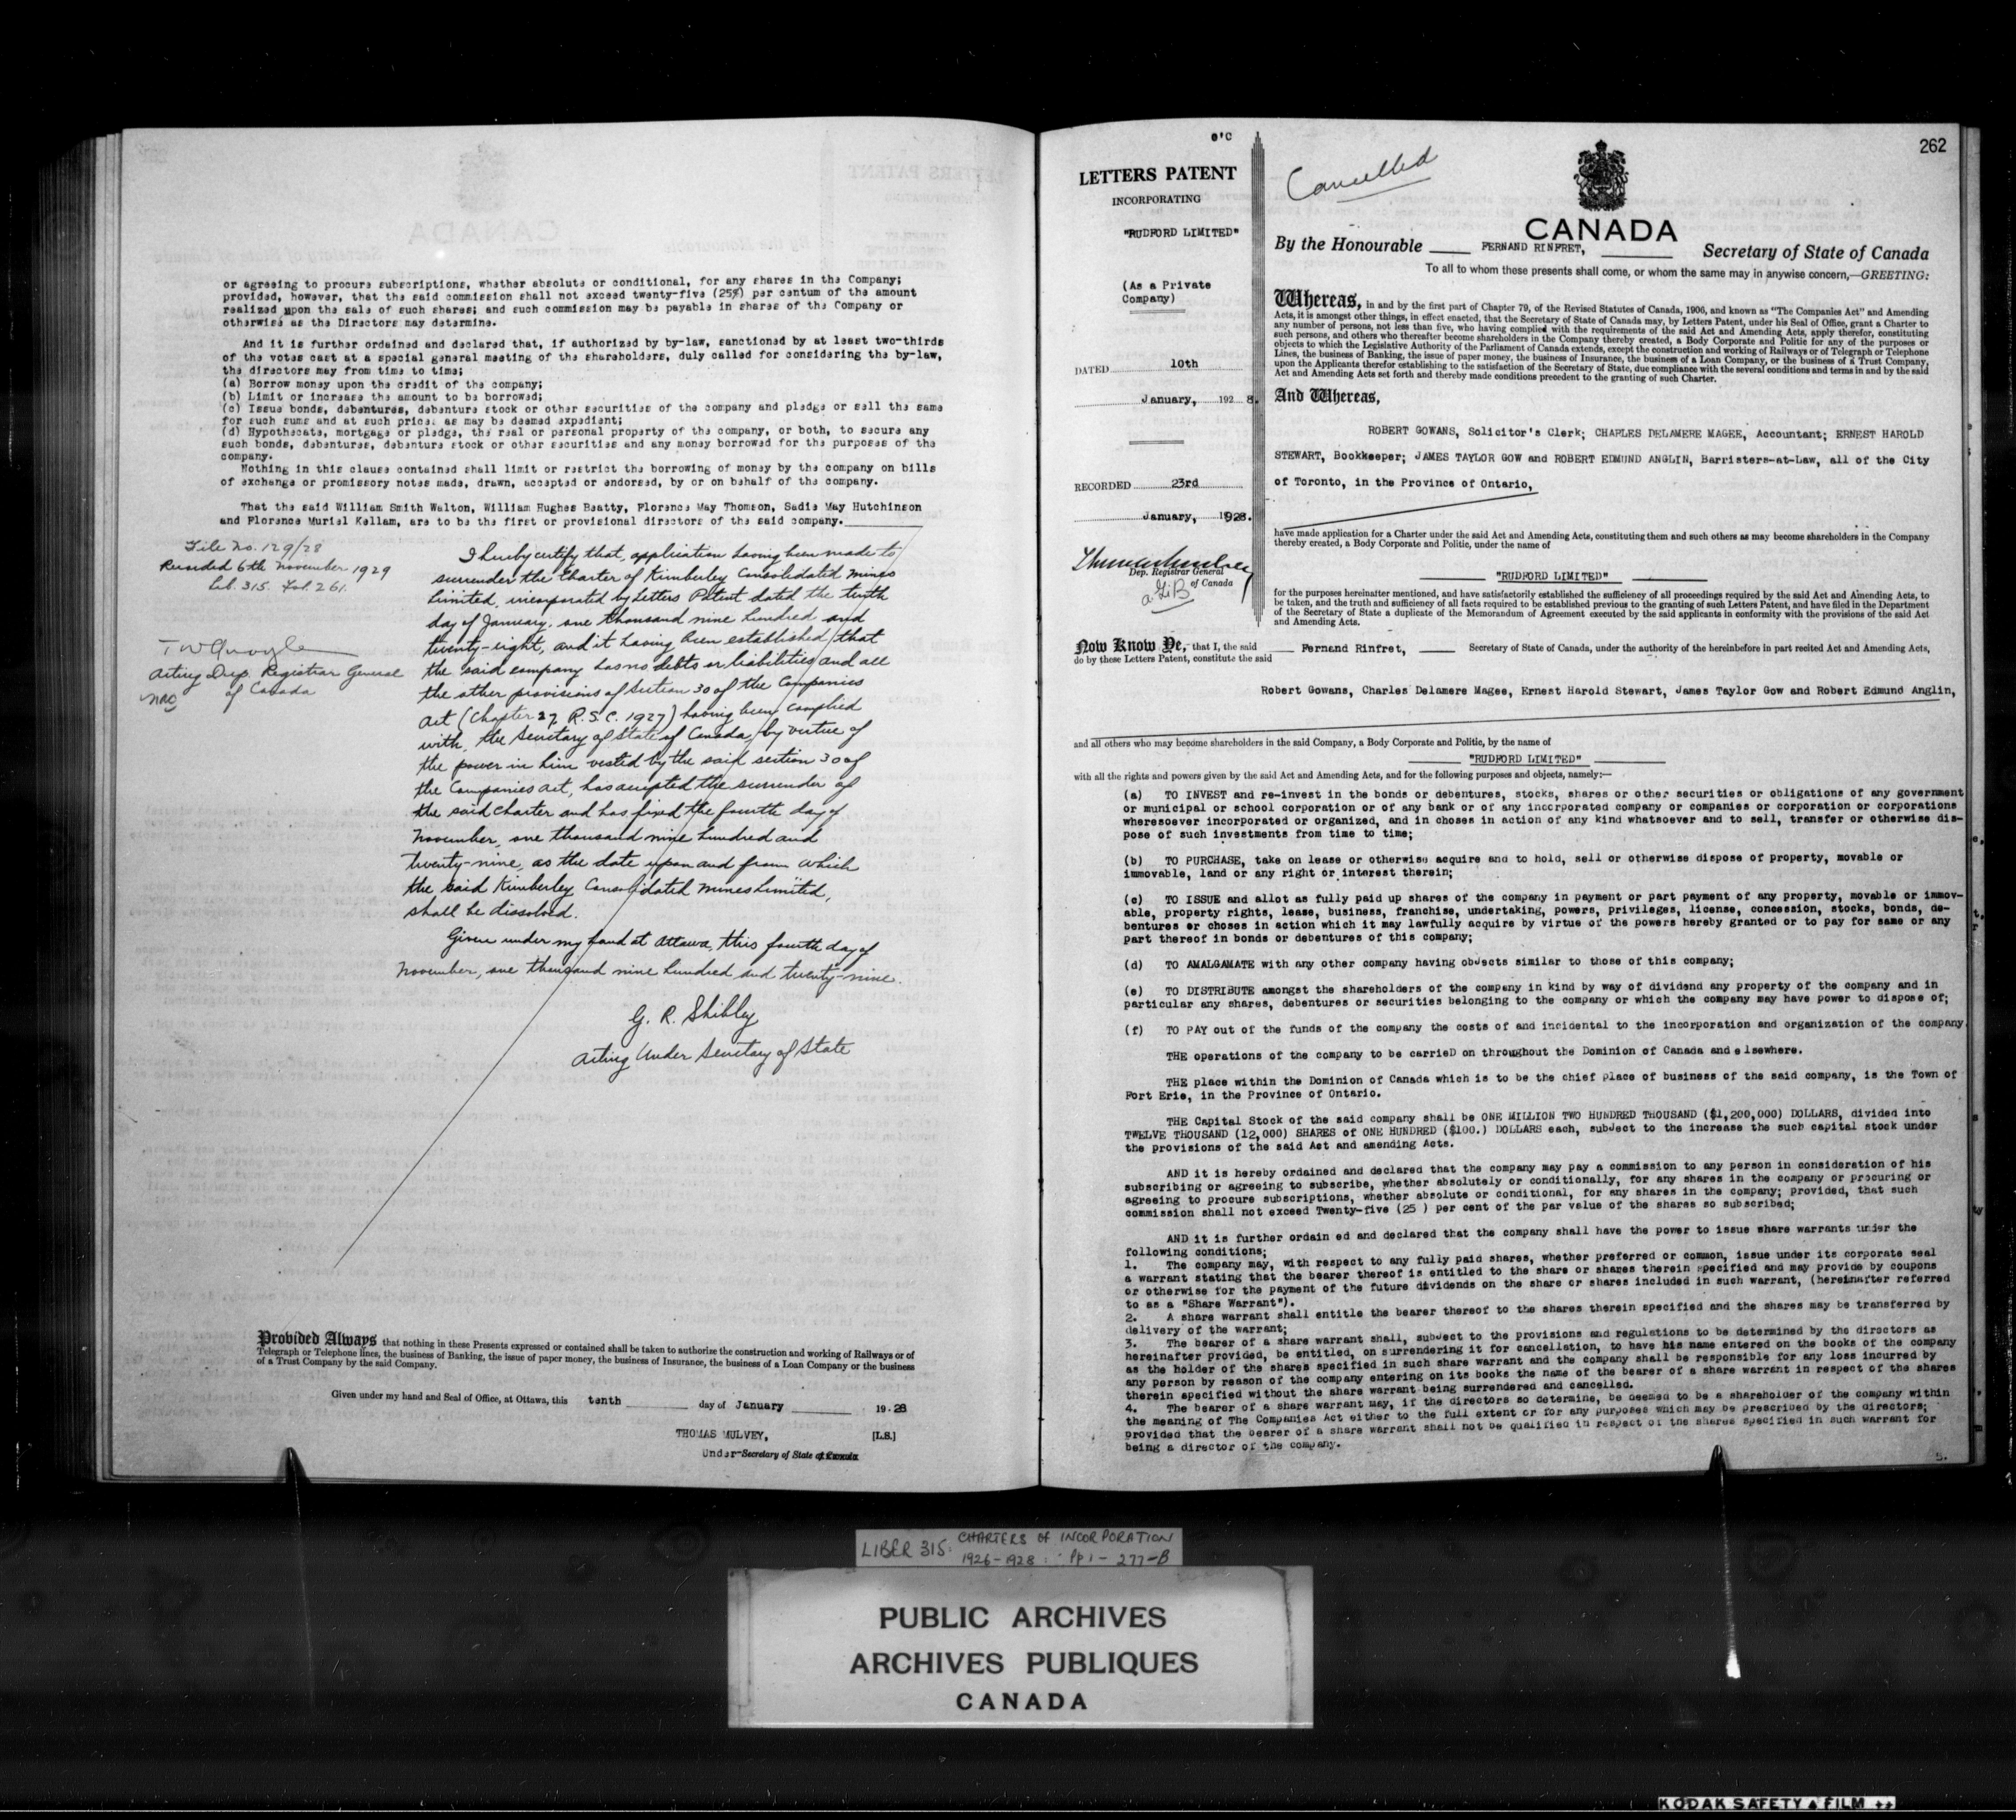 or agreeing to procure subscriptions, whether absolute or conditional, for any shares in the Company;
provided, however, that the said commission shall not exceed twenty-five (25%) per centum of the amount
realized upon the sale of such shares; and such commission may be payable in shares of the Company or
otherwise as the Directors may determine.
And it is further ordained and declared that, if authorized by by-law, sanctioned by at least two-thirds
of the votes cast at a special general meeting of the shareholders, duly called for considering the by-law,
the directors may from time to time;
(a) Borrow money upon the credit of the company;
(b) Limit or increase the amount to be borrowed;
(c) Issue bonds, debentures, debenture stock or other securities of the company and pledge or sell the same
for such sums and at such prices as may be deemed expedient;
(d) Hypothecate, mortgage or pledge, the real or personal property of the company, or both, to secure any
such bonds, debentures, debenture stock or other securities and any money borrowed for the purposes of the
company.
Nothing in this clause contained shall limit or restrict the borrowing of money by the company on bills
of exchange or promissory notes made, drawn, accepted or endorsed, by or on behalf of the company.
That the said William Smith Walton, William Hughes Beatty, Florence May Thomson, Sadie May Hutchinson
and Florence Muriel Kellam, are to be the first or provisional directors of the said company.
File No. 129/28
Recorded 6th November 1929
Lib. 315. Fol. 261.
Acting Dep. Registrar General
of Canada
I hereby certify that, application having been made to
surrender the Charter of Kimberley Consolidated Mines
Limited, incorporated by Letters Patent dated the tenth
day of January, one thousand nine hundred and
twenty-eight, and it having been established that
the said company has no debts or liabilities and all
the other provisions of Section 30 of the Companies
Act (Chapter 27, R.S.C. 1927) having been complied
with, the Secretary of State of Canada, by virtue of
the power in him vested by the said section 30 of
the Companies Act, has accepted the surrender of
the said charter and has fixed the fourth day of
November, one thousand nine hundred and
twenty-nine, as the date upon and from which
the said Kimberley Consolidated Mines Limited,
shall be dissolved.
Given under my hand at Ottawa, this fourth day of
November, one thousand nine hundred and twenty-nine.
G. R. Shibley
Acting Under Secretary of State
Provided Always that nothing in these Presents expressed or contained shall be taken to authorize the construction and working of Railways or of
Telegraph or Telephone lines, the business of Banking, the issue of paper money, the business of Insurance, the business of a Loan Company or the business
of a Trust Company by the said Company.
Given under my hand and Seal of Office, at Ottawa, this tenth day of January 1928
THOMAS MULVEY, [L.S.]
Under-Secretary of State of Canada
O'C
LETTERS PATENT
INCORPORATING
"RUDFORD LIMITED"
(As a Private
Company)
DATED 10th
January, 1928.
RECORDED 23rd
January, 1928.
Dep. Registrar General
of Canada
262
Cancelled
CANADA
By the Honourable FERNAND RINFRET, Secretary of State of Canada
To all to whom these presents shall come, or whom the same may in anywise concern,—GREETING:
Whereas, in and by the first part of Chapter 79, of the Revised Statutes of Canada, 1906, and known as "The Companies Act" and Amending
Acts, it is amongst other things, in effect enacted, that the Secretary of State of Canada may, by Letters Patent, under his Seal of Office, grant a Charter to
any number of persons, not less than five, who having complied with the requirements of the said Act and Amending Acts, apply therefor, constituting
such persons, and others who thereafter become shareholders in the Company thereby created, a Body Corporate and Politic for any of the purposes or
objects to which the Legislative Authority of the Parliament of Canada extends, except the construction and working of Railways or of Telegraph or Telephone
Lines, the business of Banking, the issue of paper money, the business of Insurance, the business of a Loan Company, or the business of a Trust Company,
upon the Applicants therefor establishing to the satisfaction of the Secretary of State, due compliance with the several conditions and terms in and by the said
Act and Amending Acts set forth and thereby made conditions precedent to the granting of such Charter.
And Whereas,
ROBERT GOWANS, Solicitor's Clerk; CHARLES DELAMERE MAGEE, Accountant; ERNEST HAROLD
STEWART, Bookkeeper; JAMES TAYLOR GOW and ROBERT EDMUND ANGLIN, Barristers-at-Law, all of the City
of Toronto, in the Province of Ontario,
have made application for a Charter under the said Act and Amending Acts, constituting them and such others as may become shareholders in the Company
thereby created, a Body Corporate and Politic, under the name of
"RUDFORD LIMITED"
for the purposes hereinafter mentioned, and have satisfactorily established the sufficiency of all proceedings required by the said Act and Amending Acts, to
be taken, and the truth and sufficiency of all facts required to be established previous to the granting of such Letters Patent, and have filed in the Department
of the Secretary of State a duplicate of the Memorandum of Agreement executed by the said applicants in conformity with the provisions of the said Act
and Amending Acts.
Now Know Ye, that I, the said Fernand Rinfret, Secretary of State of Canada, under the authority of the hereinbefore in part recited Act and Amending Acts,
do by these Letters Patent, constitute the said
Robert Gowans, Charles Delamere Magee, Ernest Harold Stewart, James Taylor Gow and Robert Edmund Anglin,
and all others who may become shareholders in the said Company, a Body Corporate and Politic, by the name of
"RUDFORD LIMITED"
with all the rights and powers given by the said Act and Amending Acts, and for the following purposes and objects, namely:—
(a) TO INVEST and re-invest in the bonds or debentures, stocks, shares or other securities or obligations of any government
or municipal or school corporation or of any bank or of any incorporated company or companies or corporation or corporations
wheresoever incorporated or organized, and in choses in action of any kind whatsoever and to sell, transfer or otherwise dis-
pose of such investments from time to time;
(b) TO PURCHASE, take on lease or otherwise acquire and to hold, sell or otherwise dispose of property, movable or
immovable, land or any right or interest therein;
(c) TO ISSUE and allot as fully paid up shares of the company in payment or part payment of any property, movable or immov-
able, property rights, lease, business, franchise, undertaking, powers, privileges, license, concession, stocks, bonds, de-
bentures or choses in action which it may lawfully acquire by virtue of the powers hereby granted or to pay for same or any
part thereof in bonds or debentures of this company;
(d) TO AMALGAMATE with any other company having objects similar to those of this company;
(e) TO DISTRIBUTE amongst the shareholders of the company in kind by way of dividend any property of the company and in
particular any shares, debentures or securities belonging to the company or which the company may have power to dispose of;
(f) TO PAY out of the funds of the company the costs of and incidental to the incorporation and organization of the company
THE operations of the company to be carrieD on throughout the Dominion of Canada and elsewhere.
THE place within the Dominion of Canada which is to be the chief place of business of the said company, is the Town of
Fort Erie, in the Province of Ontario.
THE Capital Stock of the said company shall be ONE MILLION TWO HUNDRED THOUSAND ($1,200,000) DOLLARS, divided into
TWELVE THOUSAND (12,000) SHARES of ONE HUNDRED ($100.) DOLLARS each, subject to the increase the such capital stock under
the provisions of the said Act and amending Acts.
AND it is hereby ordained and declared that the company may pay a commission to any person in consideration of his
subscribing or agreeing to subscribe, whether absolutely or conditionally, for any shares in the company or procuring or
agreeing to procure subscriptions, whether absolute or conditional, for any shares in the company; provided, that such
commission shall not exceed Twenty-five (25 ) per cent of the par value of the shares so subscribed;
AND it is further ordain ed and declared that the company shall have the power to issue share warrants under the
following conditions;
1. The company may, with respect to any fully paid shares, whether preferred or common, issue under its corporate seal
a warrant stating that the bearer thereof is entitled to the share or shares therein specified and may provide by coupons
or otherwise for the payment of the future dividends on the share or shares included in such warrant, (hereinafter referred
to as a "Share Warrant").
2. A share warrant shall entitle the bearer thereof to the shares therein specified and the shares may be transferred by
delivery of the warrant;
3. The bearer of a share warrant shall, subject to the provisions and regulations to be determined by the directors as
hereinafter provided, be entitled, on surrendering it for cancellation, to have his name entered on the books of the company
as the holder of the shares specified in such share warrant and the company shall be responsible for any loss incurred by
any person by reason of the company entering on its books the name of the bearer of a share warrant in respect of the shares
therein specified without the share warrant being surrendered and cancelled.
4. The bearer of a share warrant may, if the directors so determine, be deemed to be a shareholder of the company within
the meaning of The Companies Act either to the full extent or for any purposes which may be prescribed by the directors;
provided that the bearer of a share warrant shall not be qualified in respect of the shares specified in such warrant for
being a director of the company.
5.
LIBER 315: CHARTERS OF INCORPORATION
1926-1928: Pp 1 - 277-B
PUBLIC ARCHIVES
ARCHIVES PUBLIQUES
CANADA
KODAK SAFETY FILM